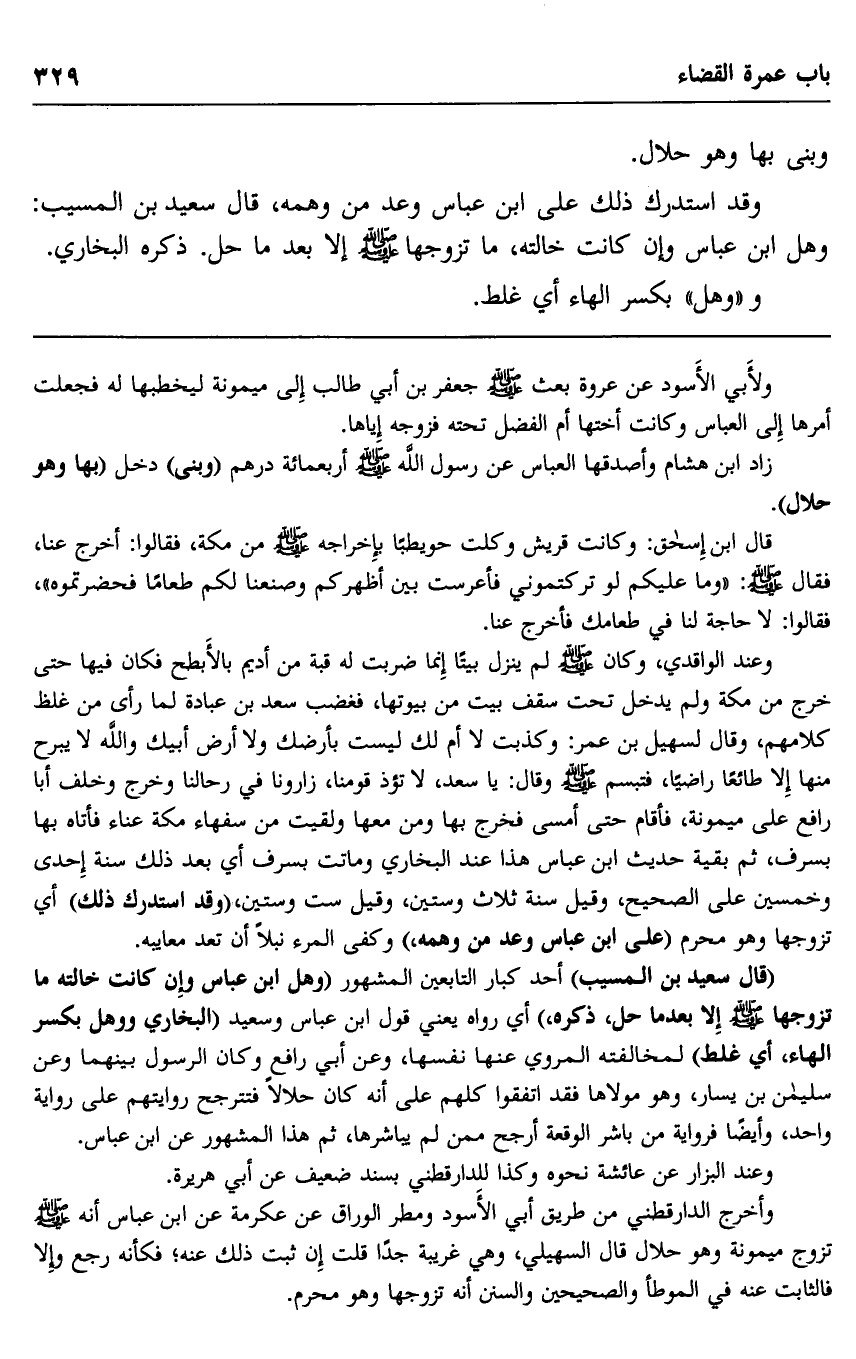 باب عمرة القضاء ٣٢٩
وبنى بها وهو حلال.
وقد استدرك ذلك على ابن عباس وعد من وهمه، قال سعيد بن المسيب:
وهل ابن عباس وإن كانت خالته، ما تزوجها ﷺ إلا بعد ما حل. ذكره البخاري.
و «وهل» بكسر الهاء أي غلط.
ولأبي الأسود عن عروة بعث ﷺ جعفر بن أبي طالب إلى ميمونة ليخطبها له فجعلت
أمرها إلى العباس وكانت أختها أم الفضل تحته فزوجه إياها.
زاد ابن هشام وأصدقها العباس عن رسول اللَّه ﷺ أربعمائة درهم (وبنى) دخل (بها وهو
حلال).
قال ابن إسحٰق: وكانت قريش وكلت حويطبًا بإخراجه ﷺ من مكة، فقالوا: أخرج عنا،
فقال ﷺ: «وما عليكم لو تركتموني فأعرست بين أظهركم وصنعنا لكم طعامًا فحضرتموه»،
فقالوا: لا حاجة لنا في طعامك فأخرج عنا.
وعند الواقدي، وكان ﷺ لم ينزل بيتًا إنما ضربت له قبة من أديم بالأبطح فكان فيها حتى
خرج من مكة ولم يدخل تحت سقف بيت من بيوتها، فغضب سعد بن عبادة لما رأى من غلظ
كلامهم، وقال لسهيل بن عمر: وكذبت لا أم لك ليست بأرضك ولا أرض أبيك واللَّه لا يبرح
منها إلا طائعًا راضيًا، فتبسم ﷺ وقال: يا سعد، لا تؤذ قومنا، زارونا في رحالنا وخرج وخلف أبا
رافع على ميمونة، فأقام حتى أمسى فخرج بها ومن معها ولقيت من سفهاء مكة عناء فأتاه بها
بسرف، ثم بقية حديث ابن عباس هذا عند البخاري وماتت بسرف أي بعد ذلك سنة إحدى
وخمسين على الصحيح، وقيل سنة ثلاث وستين، وقيل ست وستين،(وقد استدرك ذلك) أي
تزوجها وهو محرم (على ابن عباس وعد من وهمه،) وكفى المرء نبلاً أن تعد معايبه.
(قال سعيد بن المسيب) أحد كبار التابعين المشهور (وهل ابن عباس وإن كانت خالته ما
تزوجها ﷺ إلا بعدما حل، ذكره،) أي رواه يعني قول ابن عباس وسعيد (البخاري ووهل بكسر
الهاء، أي غلط) لمخالفته المروي عنها نفسها، وعن أبي رافع وكان الرسول بينهما وعن
سليمٰن بن يسار، وهو مولاها فقد اتفقوا كلهم على أنه كان حلالاً فتترجح روايتهم على رواية
واحد، وأيضًا فرواية من باشر الوقعة أرجح ممن لم يباشرها، ثم هذا المشهور عن ابن عباس.
وعند البزار عن عائشة نحوه وكذا للدارقطني بسند ضعيف عن أبي هريرة.
وأخرج الدارقطني من طريق أبي الأسود ومطر الوراق عن عكرمة عن ابن عباس أنه ﷺ
تزوج ميمونة وهو حلال قال السهيلي، وهي غريبة جدًا قلت إن ثبت ذلك عنه؛ فكأنه رجع وإلا
فالثابت عنه في الموطأ والصحيحين والسنن أنه تزوجها وهو محرم.